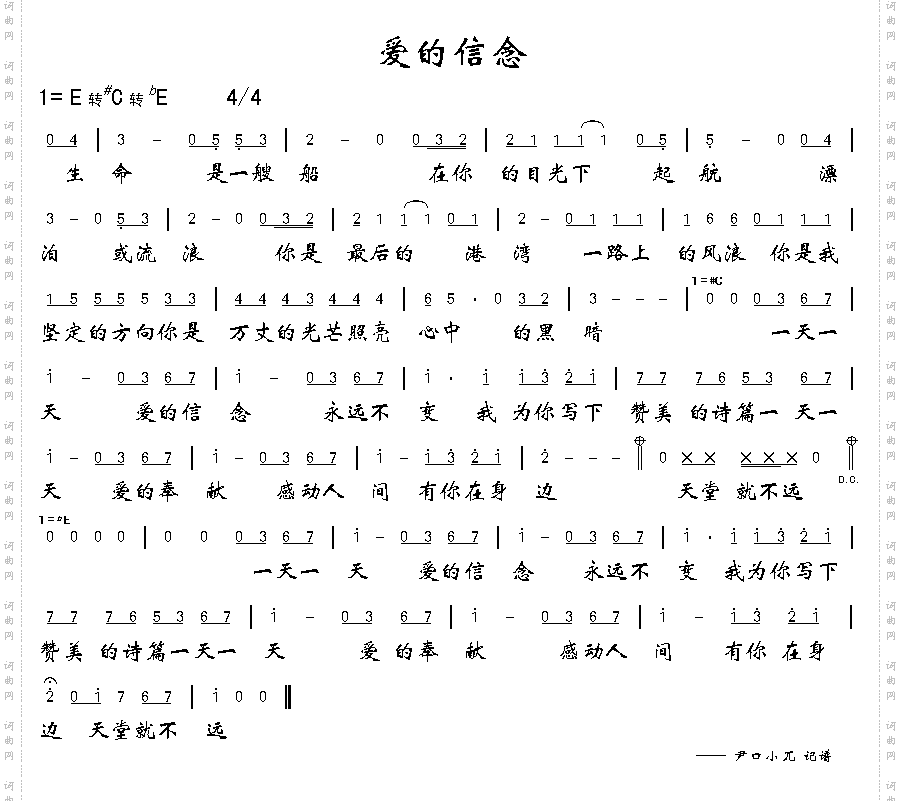 爱的信念
1= E 转#C 转 bE 4/4
0 4 | 3 - 0 5 5 3 | 2 - 0 0 3 2 | 2 1 1 1 1 0 5 | 5 - 0 0 4 |
生 命 是一艘 船 在你 的目光下 起 航 漂
3 - 0 5 3 | 2 - 0 0 3 2 | 2 1 1 1 0 1 | 2 - 0 1 1 1 | 1 6 6 0 1 1 1 |
泊 或流 浪 你是 最后的 港 湾 一路上 的风浪 你是我
1=#C
1 5 5 5 5 3 3 | 4 4 4 3 4 4 4 | 6 5 · 0 3 2 | 3 - - - | 0 0 0 3 6 7 |
坚定的方向你是 万丈的光芒照亮 心中 的黑 暗 一天一
i - 0 3 6 7 | i - 0 3 6 7 | i · i i 3 2 i | 7 7 7 6 5 3 6 7 |
天 爱的信 念 永远不 变 我 为你写下 赞美 的诗篇一 天一
i - 0 3 6 7 | i - 0 3 6 7 | i - i 3 2 i | 2 - - - | 0 X X X X X 0 |
D.C.
天 爱的奉 献 感动人 间 有你在身 边 天堂 就不远
1=bE
0 0 0 0 | 0 0 0 3 6 7 | i - 0 3 6 7 | i - 0 3 6 7 | i · i i 3 2 i |
一天一 天 爱的信 念 永远不 变 我为你写下
7 7 7 6 5 3 6 7 | i - 0 3 6 7 | i - 0 3 6 7 | i - i 3 2 i |
赞美 的诗篇一天一 天 爱 的奉 献 感动人 间 有你 在身
2 0 i 7 6 7 | i 0 0 ‖
边 天堂就不 远
—— 尹口小兀 记谱
词曲网